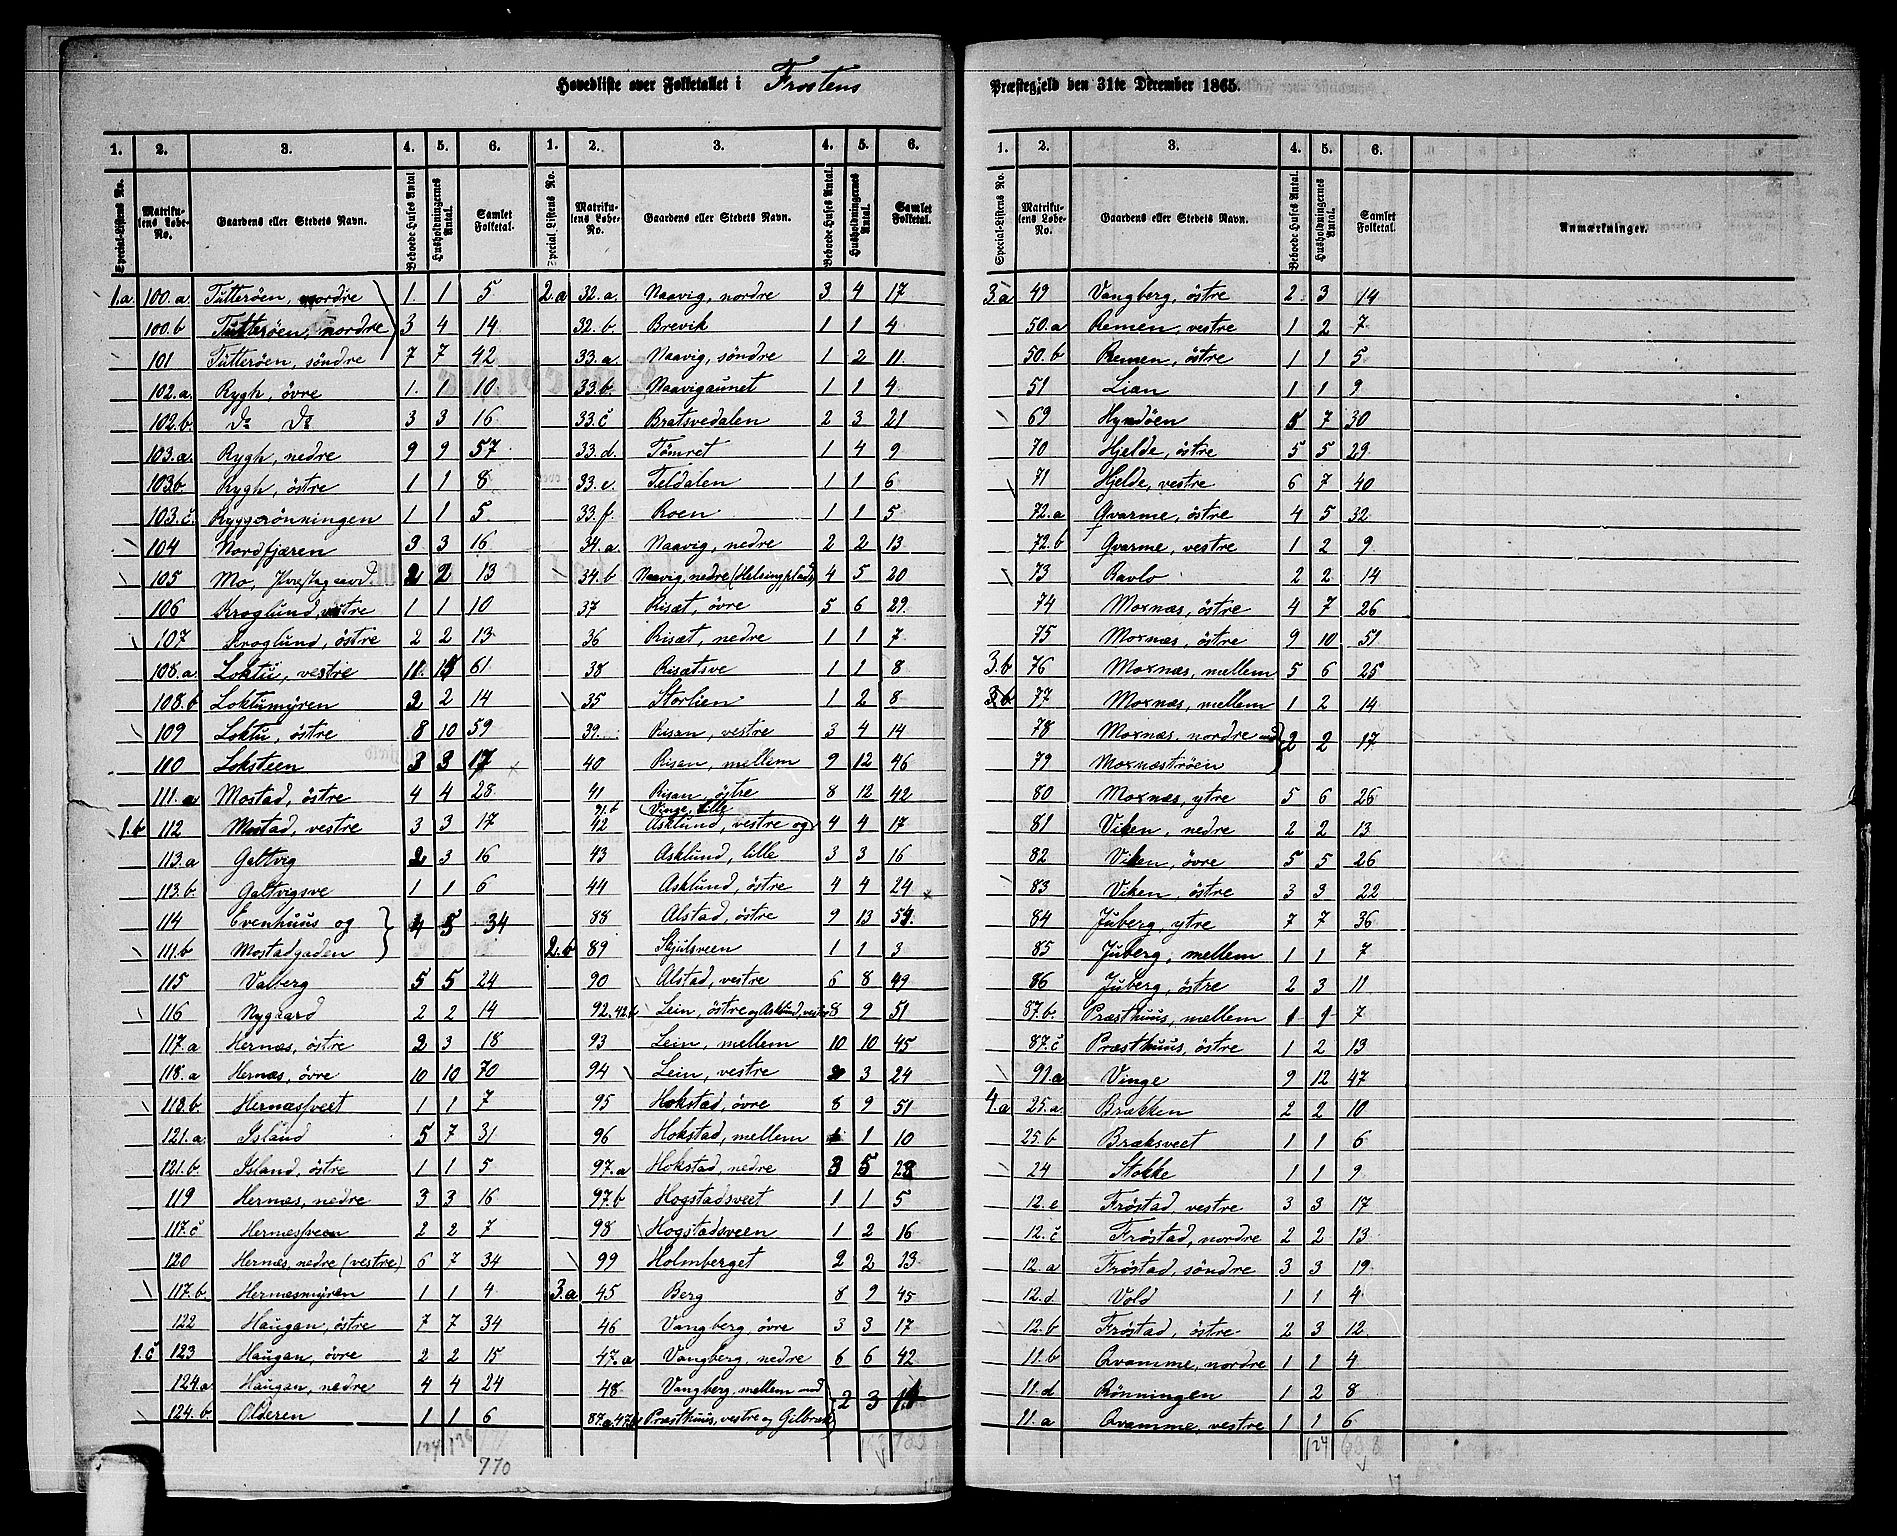 Hovedliste over Folketallet i Frostens Præstegjeld den 31te December 1865.
1. 2. 3. 4. 5. 6. 1. 2. 3. 4. 5. 6.
Special-Listens No. Matrikulens Løbe-No. Gaardens eller Stedets Navn. Beboede Huses Antal Husholdningernes Antal. Samlet Folketal. Special Listens No. Matrikulens Løbe-No. Gaardens eller Stedets Navn. Beboede Huses Antal. Husholdningernes Antal. Samlet Folketal.
1.a 100.a Tutterøen, nordre 1. 1 5
100.b Tutterøen, nordre 3 4 14
101 Tutterøen, söndre 7 7 42
102.a. Rygh, övre 1. 1 10
102.b. Do Do 3 3 16
103.a. Rygh, nedre 9 9 57
103.b. Rygh, östre 1 1 8
103.c. Ryggerönningen 1 1 5
104 Nordfjæren 3 3 16
105 Mo, 2 2 13
106 Kroglund, vestre 1 1 10
107 Kroglund, östre 2 2 13
108.a Loktu, vestre 11 15 61
108.b Loktumyren 2 2 14
109 Loktu, östre 8 10 59
110 Loksteen 3 3 17
111.a Mostad, östre 4 4 28
1.b 112 Mostad, vestre 3 3 17
113.a Galtvig 2 3 16
113.b. Galtvigsve 1 1 6
114 Evenhuus og 4 5 34
111.b Mostadgaden
115 Valberg 5 5 24
116 Nygaard 2 2 14
117.a Hernæs, östre 2 3 18
118.a Hernæs, övre 10 10 70
118.b. Hernæsveet 1 1 7
121.a. Island 5 7 31
121.b. Island, östre 1 1 5
119 Hernæs, nedre 3 3 16
117.c Hernæsveen 2 2 7
120 Hernæs, nedre (vestre) 6 7 34
117.b. Hernæsmyren 1 1 4
122 Haugan, östre 7 7 34
1.c 123 Haugan, övre 2 2 15
124.a Haugan, nedre 4 4 24
124.b. Olderen 1 1 6
770
2.a 32.a. Naavig, nordre 3 4 17
32.b. Brevik 1 1 4
33.a. Naavig, söndre 1 2 11.
33.b. Naavigaunet 1 1 4
33.c Bratsvedalen 2 3 21
33.d. Tömret 1 4 9
33.e. Feldalen 1 1 6
33.f. Roen 1 1 5
34.a. Naavig, nedre 2 2 13
34.b Naavig, nedre (Helsingplads) 4 5 20
37 Risæt, övre 5 6 29.
36 Risæt, nedre 1 1 7
38 Risætsve 1 1 8
35 Storlien 1 2 8
39. Risan, vestre 3 4 14
40 Risan, mellem 9 12 46
41 Risan, östre 8 12 42
91.b Vinge, lille
42 Asklund, vestre og 4 4 17
43 Asklund, lille 3 3 16
44 Asklund, östre 4 4 24
88 Alstad, östre 9 13 59.
2.b 89 Skjulsveen 1 1 3
90 Alstad, vestre 6 8 49
92.42.b Lein, östre og Asklund, vestre 8 9 51
93 Lein, mellem 10 10 45
94 Lein, vestre 2 3 24
95 Hokstad, övre 8 9 51
96 Hokstad, mellem 1 1 10
97.a Hokstad, nedre 3 5 23
97.b Hogstadsveet 1 1 5
98 Hogstadsveen 1 2 16
99 Holmberget 2 2 13
3.a 45 Berg 8 9 45
46 Vangberg, övre 3 3 17
47.a Vangberg, nedre 6 6 42
48. Vangberg, mellem og 2 3 11
87.a.47.b Præsthuus, vestre og Gilbrak
1. 2. 3. 4. 5. 6.
Special-Listens No. Matrikulens Løbe-No. Gaardens eller Stedets Navn. Beboede Huses Antal. Husholdningernes Antal. Samlet Folketal. Anmærkninger.
3.a 49 Vangberg, östre 2 3 14
50.a Remen, vestre 1 2 7
50.b Remen, östre 1 1 5
51 Lian 1 1 9
69 Hyndöen 5 7 30
70 Hjelde, östre 5 5 29.
71 Hjelde, vestre 6 7 40
72.a Gvarme, östre 4 5 32
72.b Gvarme, vestre 1 2 9
73 Ravlo 2 2 14
74 Moxnæs, östre 4 7 26
75 Moxnæs, östre 9 10 51
3.b 76 Moxnæs, mellem 5 6 25
3.b 77 Moxnæs, mellem 1 2 14
78 Moxnæs, nordre med 2 2 17
79 Moxnæströen
80 Moxnæs, ytre 5 6 26
81 Viken, nedre 2 2 13
82 Viken, övre 5 5 26
83 Viken, östre 3 3 22
84 Juberg, ytre 7 7 36
85 Juberg, mellem 1 1 7
86 Juberg, östre 2 3 11
87.b. Præsthuus, mellem 1 1 7
87.c Præsthuus, östre 1 2 13
91.a Vinge 9 12 47
4.a 25.a. Brækken 2 2 10
25.b Bræksveet 1 1 6
24 Stokke 1 1 9
12.e Fröstad, vestre 3 3 17
12.c Fröstad, nordre 2 2 13
12.a Fröstad, söndre 3 3 19
12.d. Vold 1 1 4
12.b Fröstad, östre 2 3 12
11.b Qvamme, nordre 1 1 4
11.d Rönningen 1 2 8
11.a Qvamme, vestre 1 1 6
124